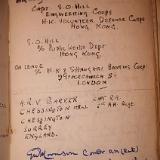 Capt S.O. Hill
Engineering Corps
H.K. Volunteer Defence Corps
Hong Kong.
S.O. Hill
c/o Public Works Dept
Hong Kong
On leave c/o H.K. & Shanghai Banking Corp
9 Gracechurch St
London
A.R.V. Barker
Chessington Hall
Chessington
Surrey
England.